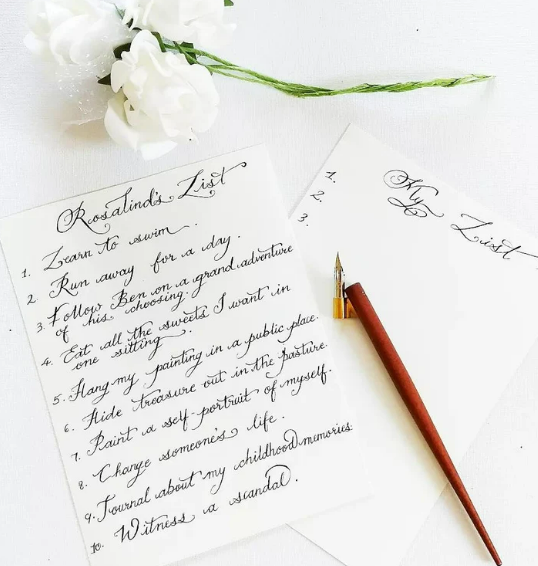 Rosalind's List
1. Learn to swim.
2. Run away for a day.
3. Follow Ben on a grand adventure
of his choosing.
4. Eat all the sweets I want in
one sitting.
5. Hang my painting in a public place.
6. Hide treasure out in the pasture.
7. Paint a self-portrait of myself.
8. Change someone's life.
9. Journal about my childhood memories.
10. Witness a scandal.
My List
1.
2.
3.